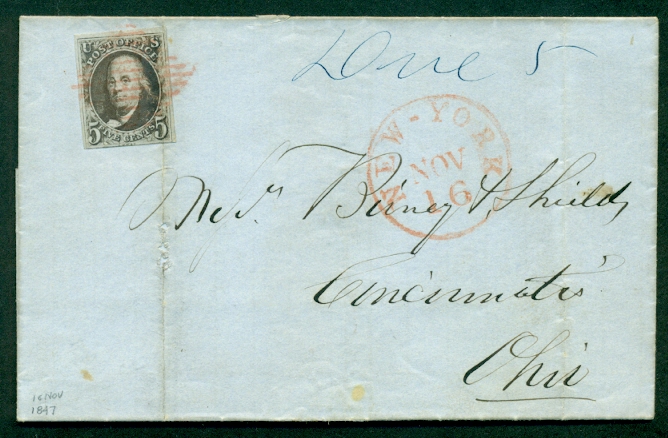 U S
POST OFFICE
5 FIVE CENTS 5
Due 5
NEW-YORK
NOV
16
Messrs Birney & Shields
Cincinnati
Ohio
16 NOV
1847